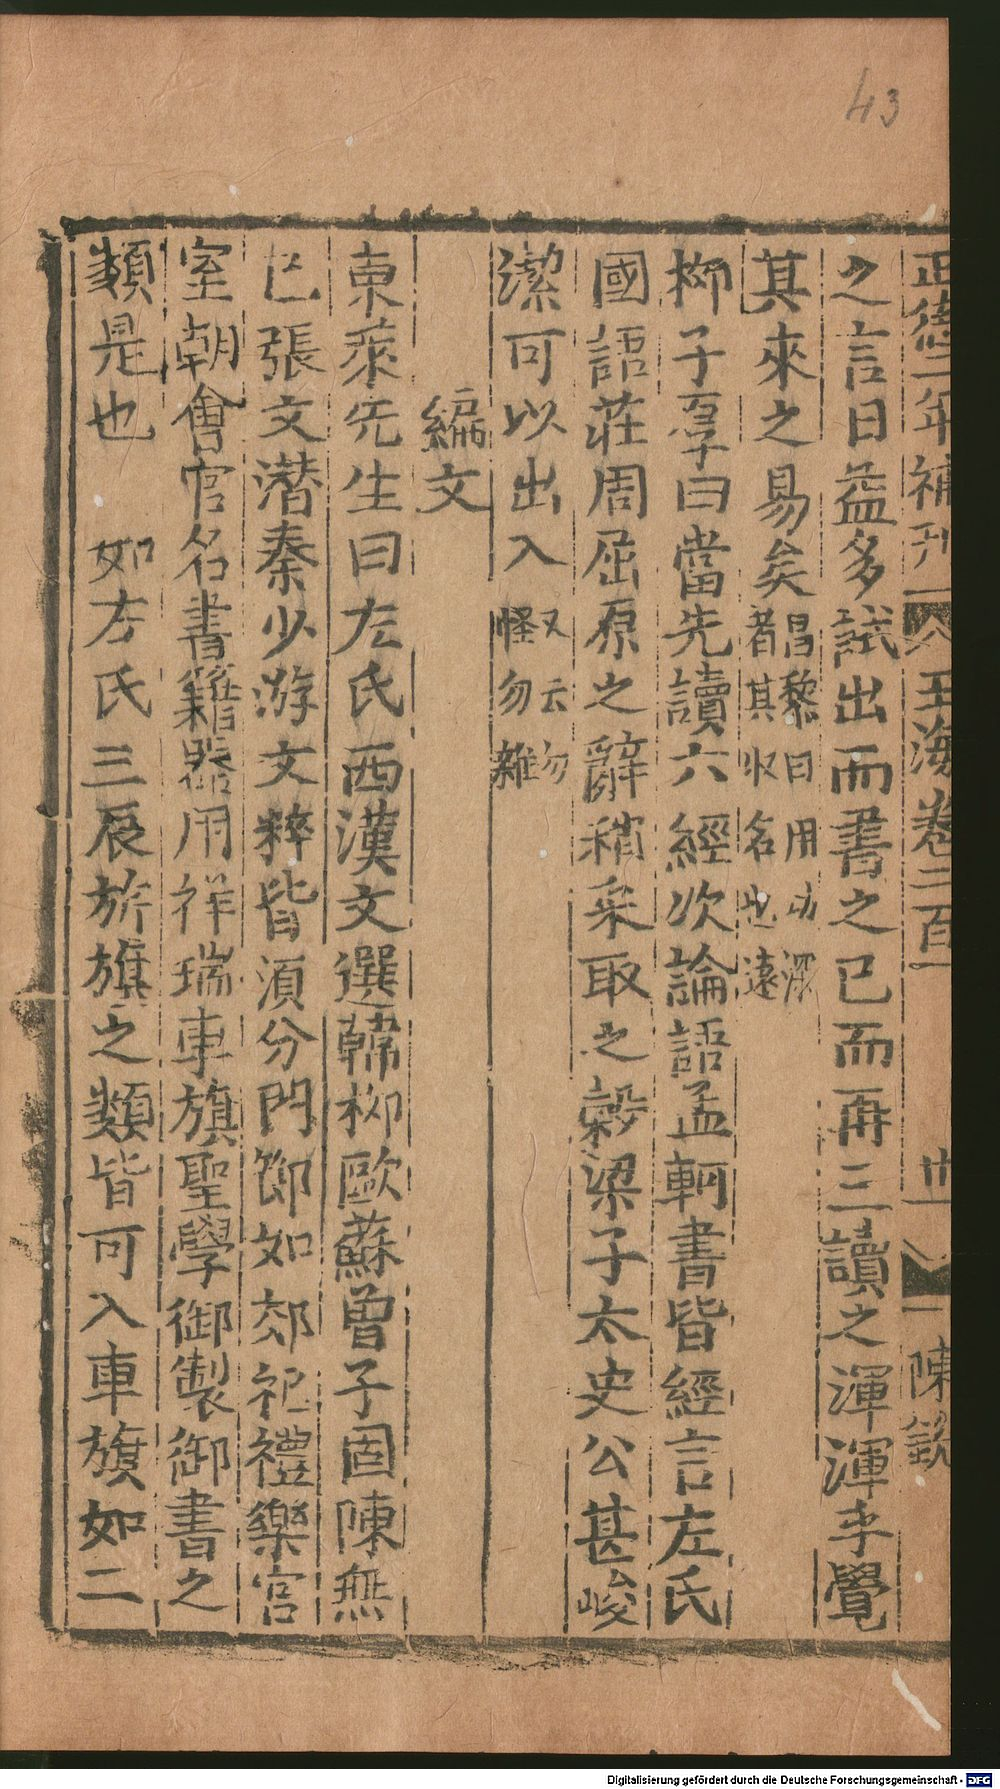 43
正德二年補刊 玉海卷二百一 卅一 陳欽
之言日益多試出而書之已而再三讀之渾渾乎覺
其來之易矣昌黎曰用功深者其收名也遠
柳子厚曰當先讀六經次論語孟軻書皆經言左氏
國語莊周屈原之辭稍采取之穀梁子太史公甚峻
潔可以出入又云勿怪勿雜
編文
東萊先生曰左氏西漢文選韓柳歐蘇曾子固陳無
已張文潜秦少游文粹皆須分門節如郊祀禮樂官
室朝會官名書籍器用祥瑞車旗聖學御製御書之
類是也 如左氏三辰旂旗之類皆可入車旗如二
Digitalisierung gefördert durch die Deutsche Forschungsgemeinschaft - DFG